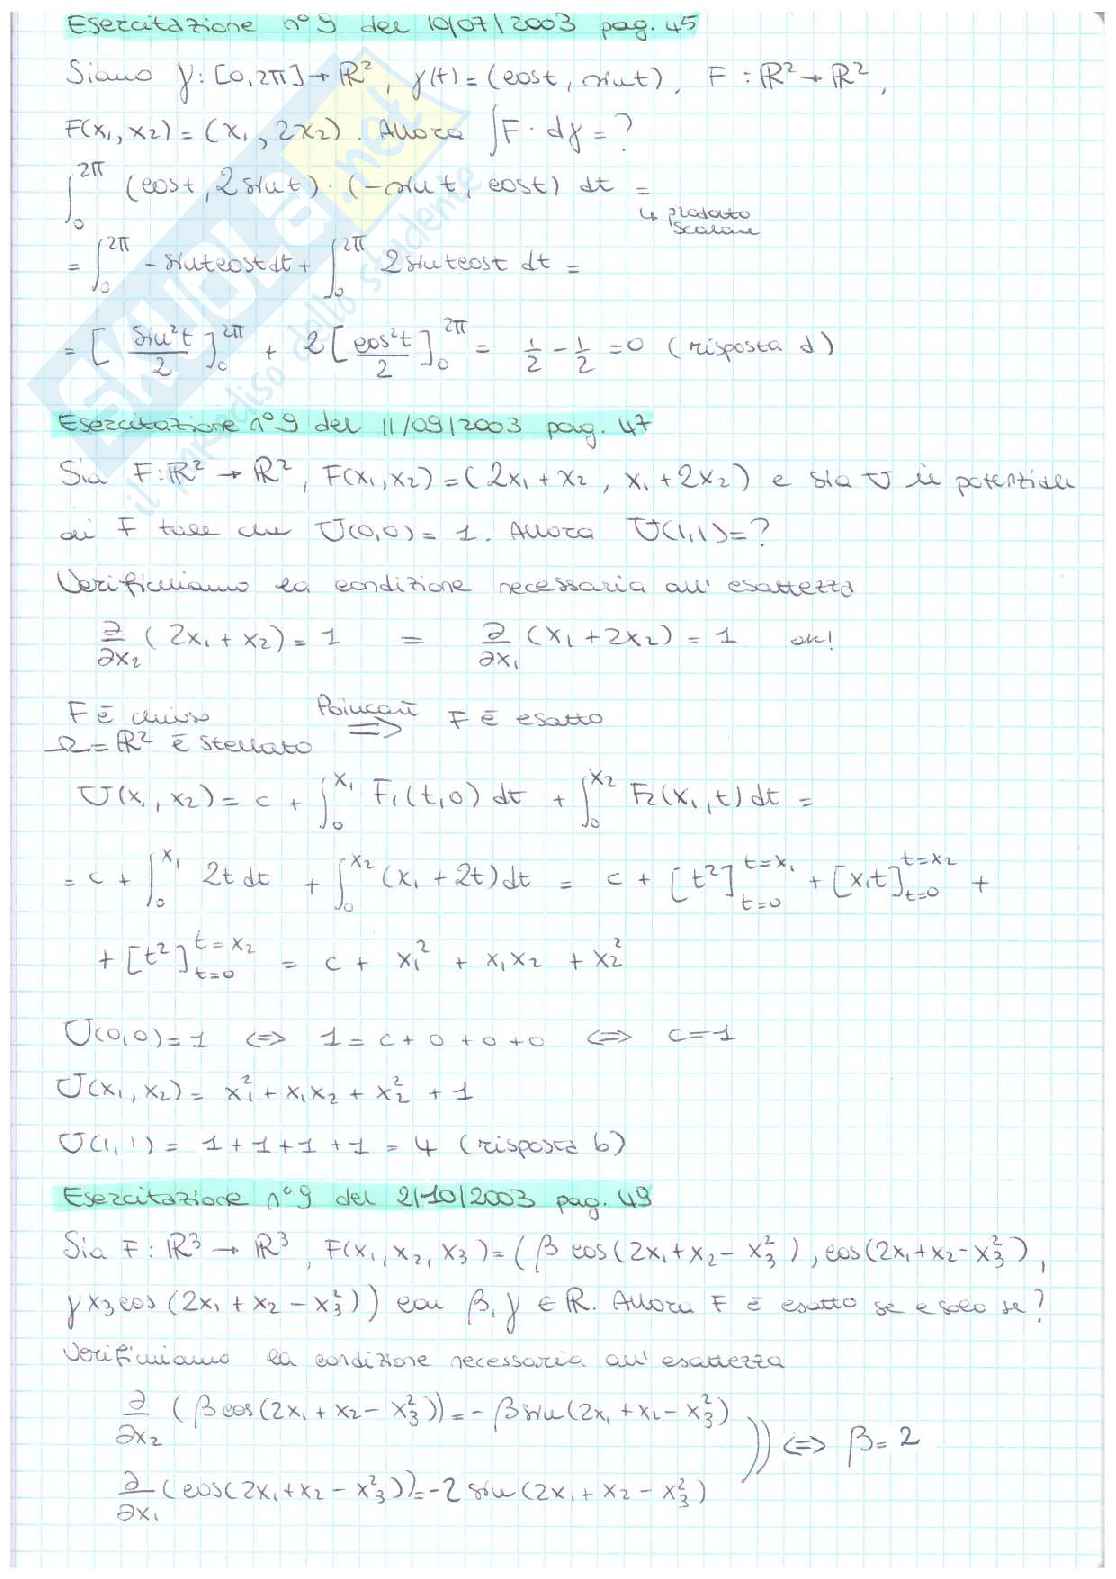 Esercitazione n°9 del 10/07/2003 pag. 45
Siano γ: [0,2π] → ℝ², γ(t) = (cost, sint), F : ℝ² → ℝ²,
F(x₁, x₂) = (x₁, 2x₂). Allora ∫F · dγ = ?
∫₀^2π (cost, 2sint) · (-sint, cost) dt =
↳ prodotto scalare
= ∫₀^2π - sintcostdt + ∫₀^2π 2sintcost dt =
= [ sin²t/2 ]₀^2π + 2 [ cos²t/2 ]₀^2π = 1/2 - 1/2 = 0 (risposta d)
Esercitazione n°9 del 11/09/2003 pag. 47
Sia F: ℝ² → ℝ², F(x₁, x₂) = (2x₁ + x₂, x₁ + 2x₂) e sia U il potenziale
di F tale che U(0,0) = 1. Allora U(1,1) = ?
Verifichiamo la condizione necessaria all'esattezza
∂/∂x₂ (2x₁ + x₂) = 1 = ∂/∂x₁ (x₁ + 2x₂) = 1 ok!
F è chiuso
Ω = ℝ² è stellato
Poincarè ⟹ F è esatto
U(x₁, x₂) = c + ∫₀^x₁ F₁(t,0) dt + ∫₀^x₂ F₂(x₁, t) dt =
= c + ∫₀^x₁ 2t dt + ∫₀^x₂ (x₁ + 2t) dt = c + [t²]_{t=0}^{t=x₁} + [x₁t]_{t=0}^{t=x₂} +
+ [t²]_{t=0}^{t=x₂} = c + x₁² + x₁x₂ + x₂²
U(0,0) = 1 ⟺ 1 = c + 0 + 0 + 0 ⟺ c = 1
U(x₁, x₂) = x₁² + x₁x₂ + x₂² + 1
U(1, 1) = 1 + 1 + 1 + 1 = 4 (risposta b)
Esercitazione n°9 del 2/10/2003 pag. 49
Sia F : ℝ³ → ℝ³, F(x₁, x₂, x₃) = (β cos(2x₁ + x₂ - x₃²), cos(2x₁ + x₂ - x₃²),
γx₃cos(2x₁ + x₂ - x₃²)) con β, γ ∈ ℝ. Allora F è esatto se e solo se?
Verifichiamo la condizione necessaria all'esattezza
∂/∂x₂ (β cos(2x₁ + x₂ - x₃²)) = - β sin(2x₁ + x₂ - x₃²)
)) ⟺ β = 2
∂/∂x₁ (cos(2x₁ + x₂ - x₃²)) = -2 sin(2x₁ + x₂ - x₃²)
SKUOLA.net
il paradiso dello studente